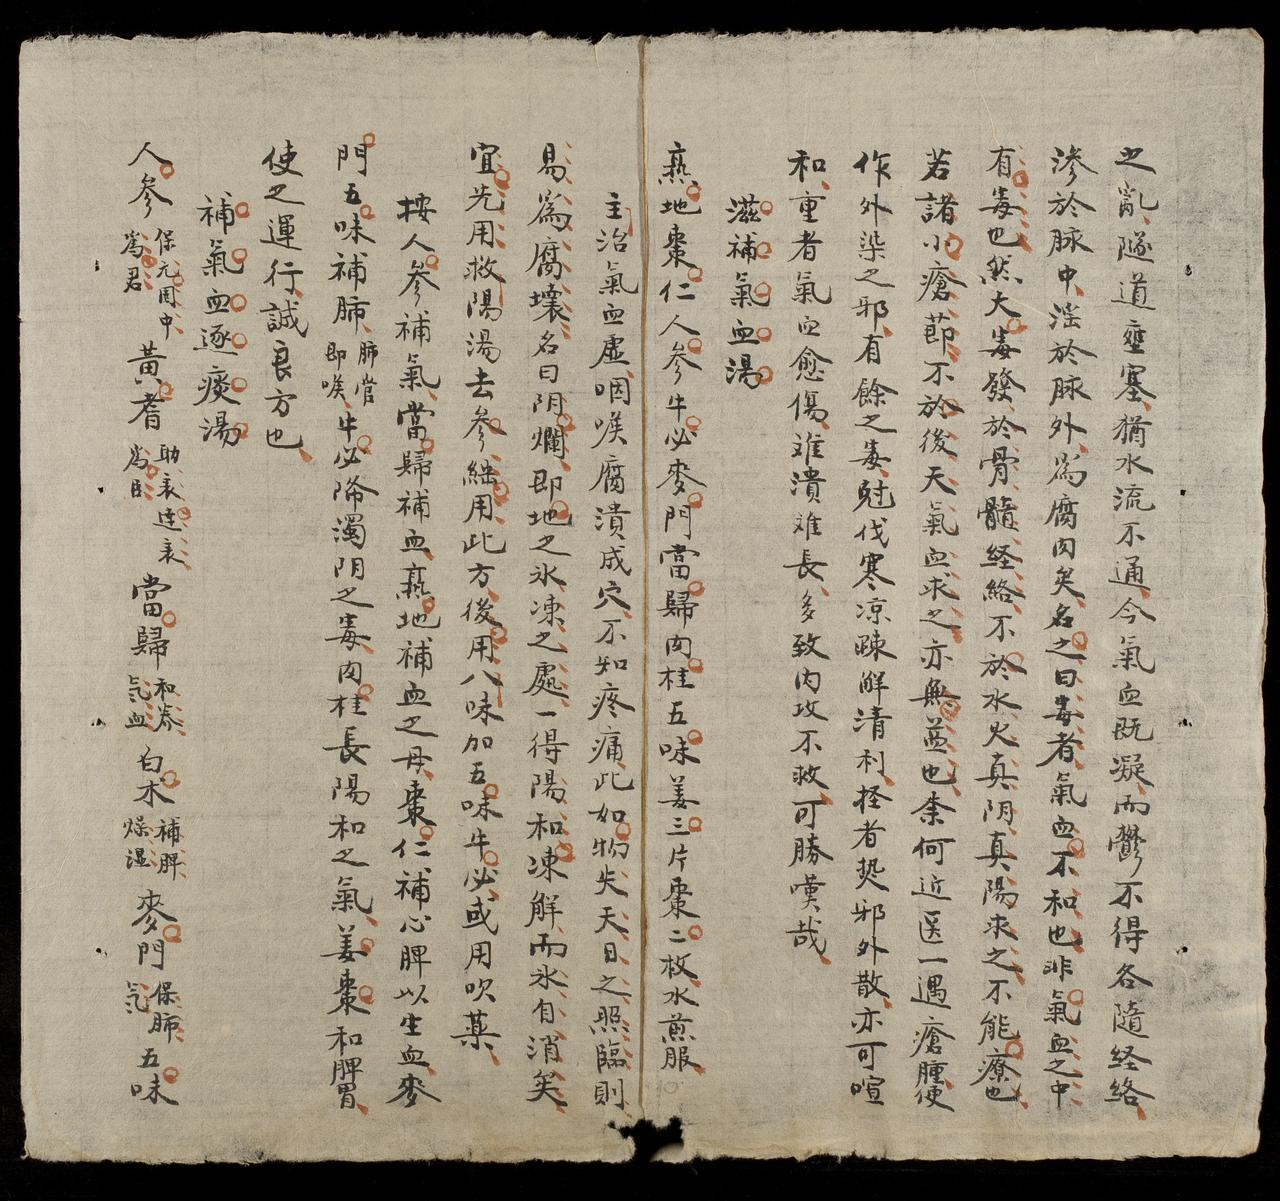 之亂隧道壅塞猶水流不通今氣血既凝而鬱不得各隨経絡
滲於脉中滛於脉外為腐肉矣名之曰毒者氣血不和也非氣血之中
有毒也然大毒發於骨髓経絡不於水火真阴真陽求之不能療也
若諸小瘡節不於後天氣血求之亦無益也柰何近医一遇瘡腫便
作外染之邪有餘之毒尅伐寒凉踈解清利揑者熱邪外散亦可暄
和重者氣血愈傷难潰难長多致内攻不救可勝嘆哉
滋補氣血湯
熟地棗仁人參牛必麥門當歸肉桂五味姜三片棗二枚水煎服
主治氣血虛咽喉腐潰成穴不知疼痛此如物失天日之照臨則
易為腐壞名曰阴爛即地之氷凍之處一得陽和凍觧而氷自消矣
宜先用救陽湯去參継用此方後用八味加五味牛必或用吹薬
按人參補氣當歸補血熟地補血之母棗仁補心脾以生血麥
門五味補肺肺管即喉牛必降濁阴之毒肉桂長陽和之氣姜棗和脾胃
使之運行誠良方也
補氣血逐痰湯
人參保元固中為君黃耆助表達表為臣當歸和养気血白术補脾燥湿麥門保肺気五味